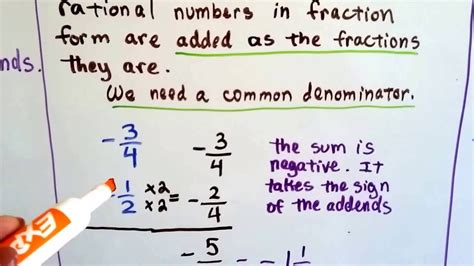 rational numbers in fraction
form are added as the fractions
ends. they are.
We need a common denominator.
-3/4 -3/4
-1/2 x2 x2 = -2/4
the sum is
negative. It
takes the sign
of the addends
-5 = -1 1
Exp